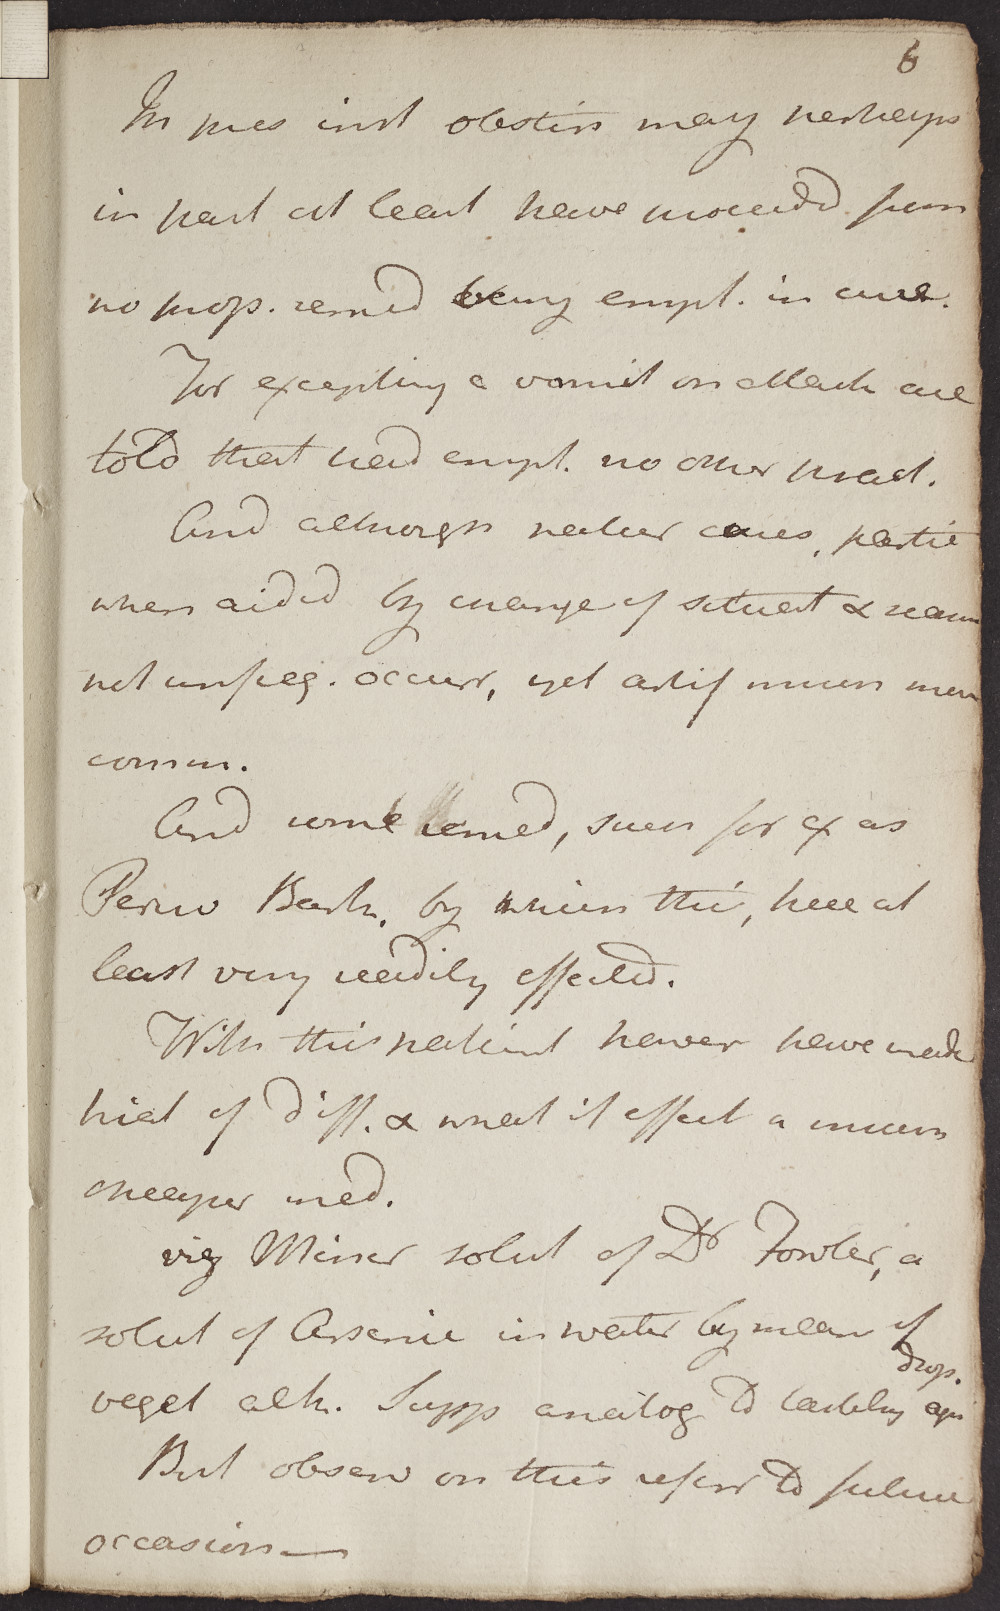 6
In pres inst obstin may perhaps
in part at least have proceedd from
no prop. remed being empl. in cure.
For excepting a vomit on attack are
told that had empl. no other pract.
And although natur cures, partic
when aided by change of situat & seasn
not unfreq. occurr, yet artif much more
comm.
And some remed, such for ex as
Peruv Bark, by which this, here at
least very readily effected.
With this patient however have made
trial of diff. & what if effect a much
cheaper med.
viz Miner solut of Dr Fowler, a
solut of Arsenic in water by mean of
veget alk. Supp analog to tasteless ague
drop.
But observ on this referr to future
occasion—